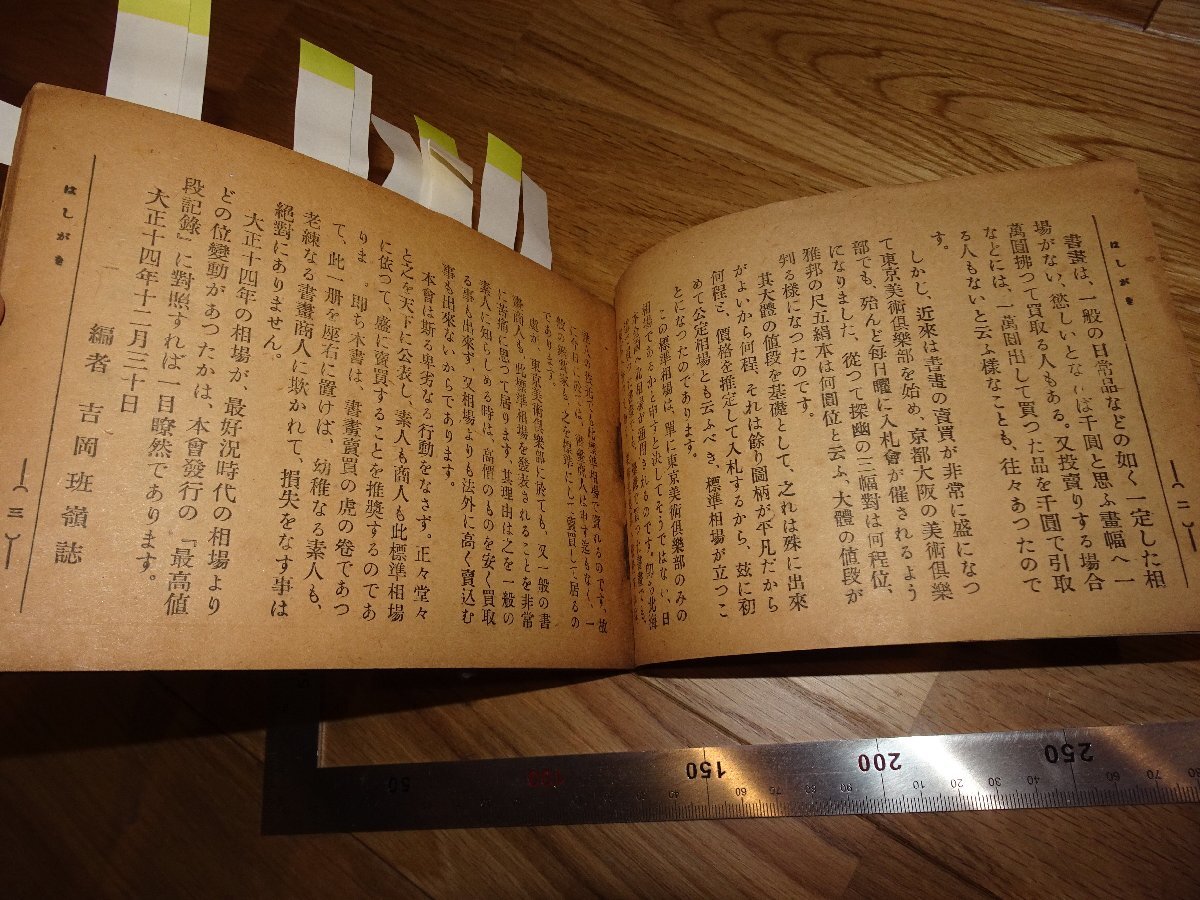 はしがき
書畫は、一般の日常品などの如く一定した相
場がない、慾しいとなれば千圓と思ふ畫幅へ一
萬圓拂つて買取る人もある。又投賣りする場合
などには、一萬圓出して買つた品を千圓で引取
る人もないと云ふ様なことも、往々あつたので
す。
しかし、近來は書畫の賣買が非常に盛になつ
て東京美術倶樂部を始め、京都大阪の美術倶樂
部でも、殆んど毎日曜に入札會が催されるよう
になりました、從つて探幽の三幅對は何程位、
雅邦の尺五絹本は何圓位と云ふ、大體の値段が
判る樣になつたのです。
其大體の値段を基礎として、之れは殊に出來
がよいから何程、それは餘り圖柄が平凡だから
何程と、價格を推定して入札するから、玆に初
めて公定相場とも云ふべき、標準相場が立つこ
とになつたのであります。
この標準相場は、單に東京美術倶樂部のみの
相場であるかと申すと決してそうではない、
二
はしがき
書商人も、此標準相場を發表されることを非常
に苦痛に思つて居ります。其理由は之を一般の
素人に知らしめる時は、高價のものを安く買取
る事も出來ず、又相場よりも法外に高く賣込む
事も出來ないからであります。
本會は斯る卑劣なる行動をなさず。正々堂々
と之を天下に公表し、素人も商人も此標準相場
に依つて、盛に賣買することを推奬するのであ
りま。即ち本書は、書畫賣買の虎の卷であつ
て、此一册を座右に置けば、幼稚なる素人も、
老練なる書畫商人に欺かれて、損失をなす事は
絕對にありません。
大正十四年の相場が、最好況時代の相場より
どの位變動があつたかは、本會發行の「最高値
段記錄」に對照すれば一目瞭然であります。
大正十四年十二月三十日
編者 吉岡班嶺誌
三
50
100
150
200
250